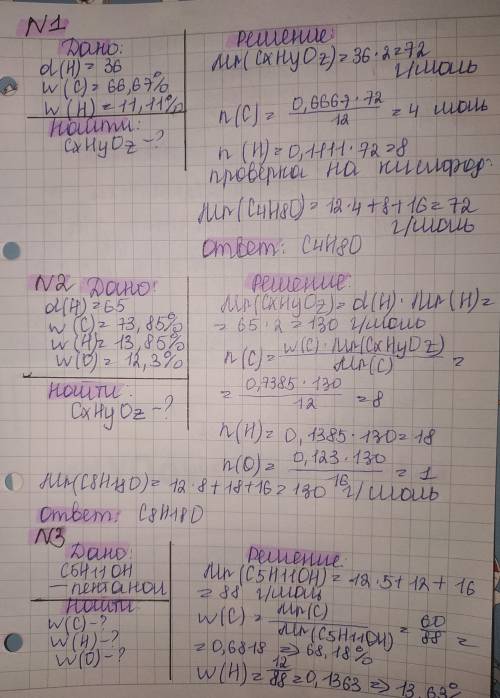 N1
Дано:
d(H) = 36
w(C) = 66,67%
w(H) = 11,11%
Найти:
CxHyOz - ?
Решение:
Mr(CxHyOz) = 36 · 2 = 72 г/моль
n(C) = 0,6667 · 72 / 12 = 4 моль
n(H) = 0,1111 · 72 = 8
проверка на кислород:
Mr(C4H8O) = 12 · 4 + 8 + 16 = 72 г/моль
Ответ: C4H8O
N2 Дано:
d(H) = 65
w(C) = 73,85%
w(H) = 13,85%
w(O) = 12,3%
Найти:
CxHyOz - ?
Решение:
Mr(CxHyOz) = d(H) · Mr(H) =
= 65 · 2 = 130 г/моль
n(C) = w(C) · Mr(CxHyOz) / Mr(C) =
= 0,7385 · 130 / 12 = 8
n(H) = 0,1385 · 130 = 18
n(O) = 0,123 · 130 / 16 = 1
Mr(C8H18O) = 12 · 8 + 18 + 16 = 130 г/моль
Ответ: C8H18O
N3
Дано:
C5H11OH
— пентанол
Найти:
w(C) - ?
w(H) - ?
w(O) - ?
Решение:
Mr(C5H11OH) = 12 · 5 + 12 + 16
= 88 г/моль
w(C) = Mr(C) / Mr(C5H11OH) = 60 / 88 =
= 0,6818 => 68,18%
w(H) = 12 / 88 = 0,1363 => 13,63%